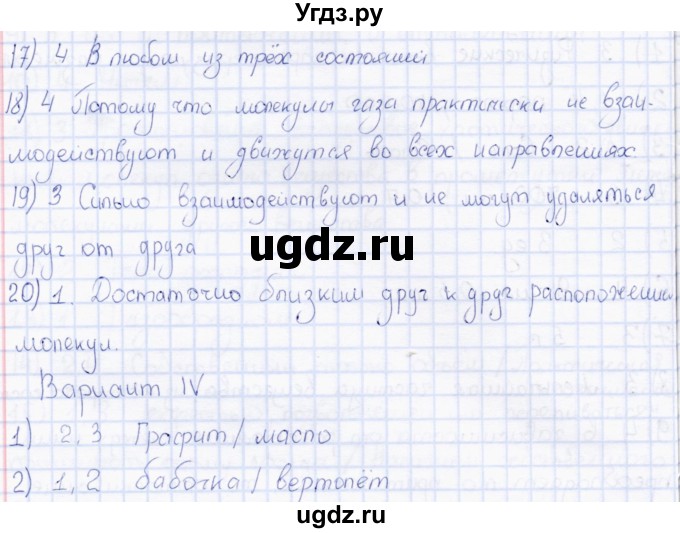 Угдз.ру
17) 4 В любом из трёх состояний
18) 4 Потому что молекулы газа практически не взаи-
модействуют и движутся во всех направлениях.
19) 3 Сильно взаимодействуют и не могут удаляться
друг от друга
ugdz.ru
20) 1. Достаточно близким друг к друг расположением
молекул.
Вариант IV
1) 2, 3 Графит / масло
2) 1, 2 бабочка / вертолёт
ugdz.ru
ugdz.ru